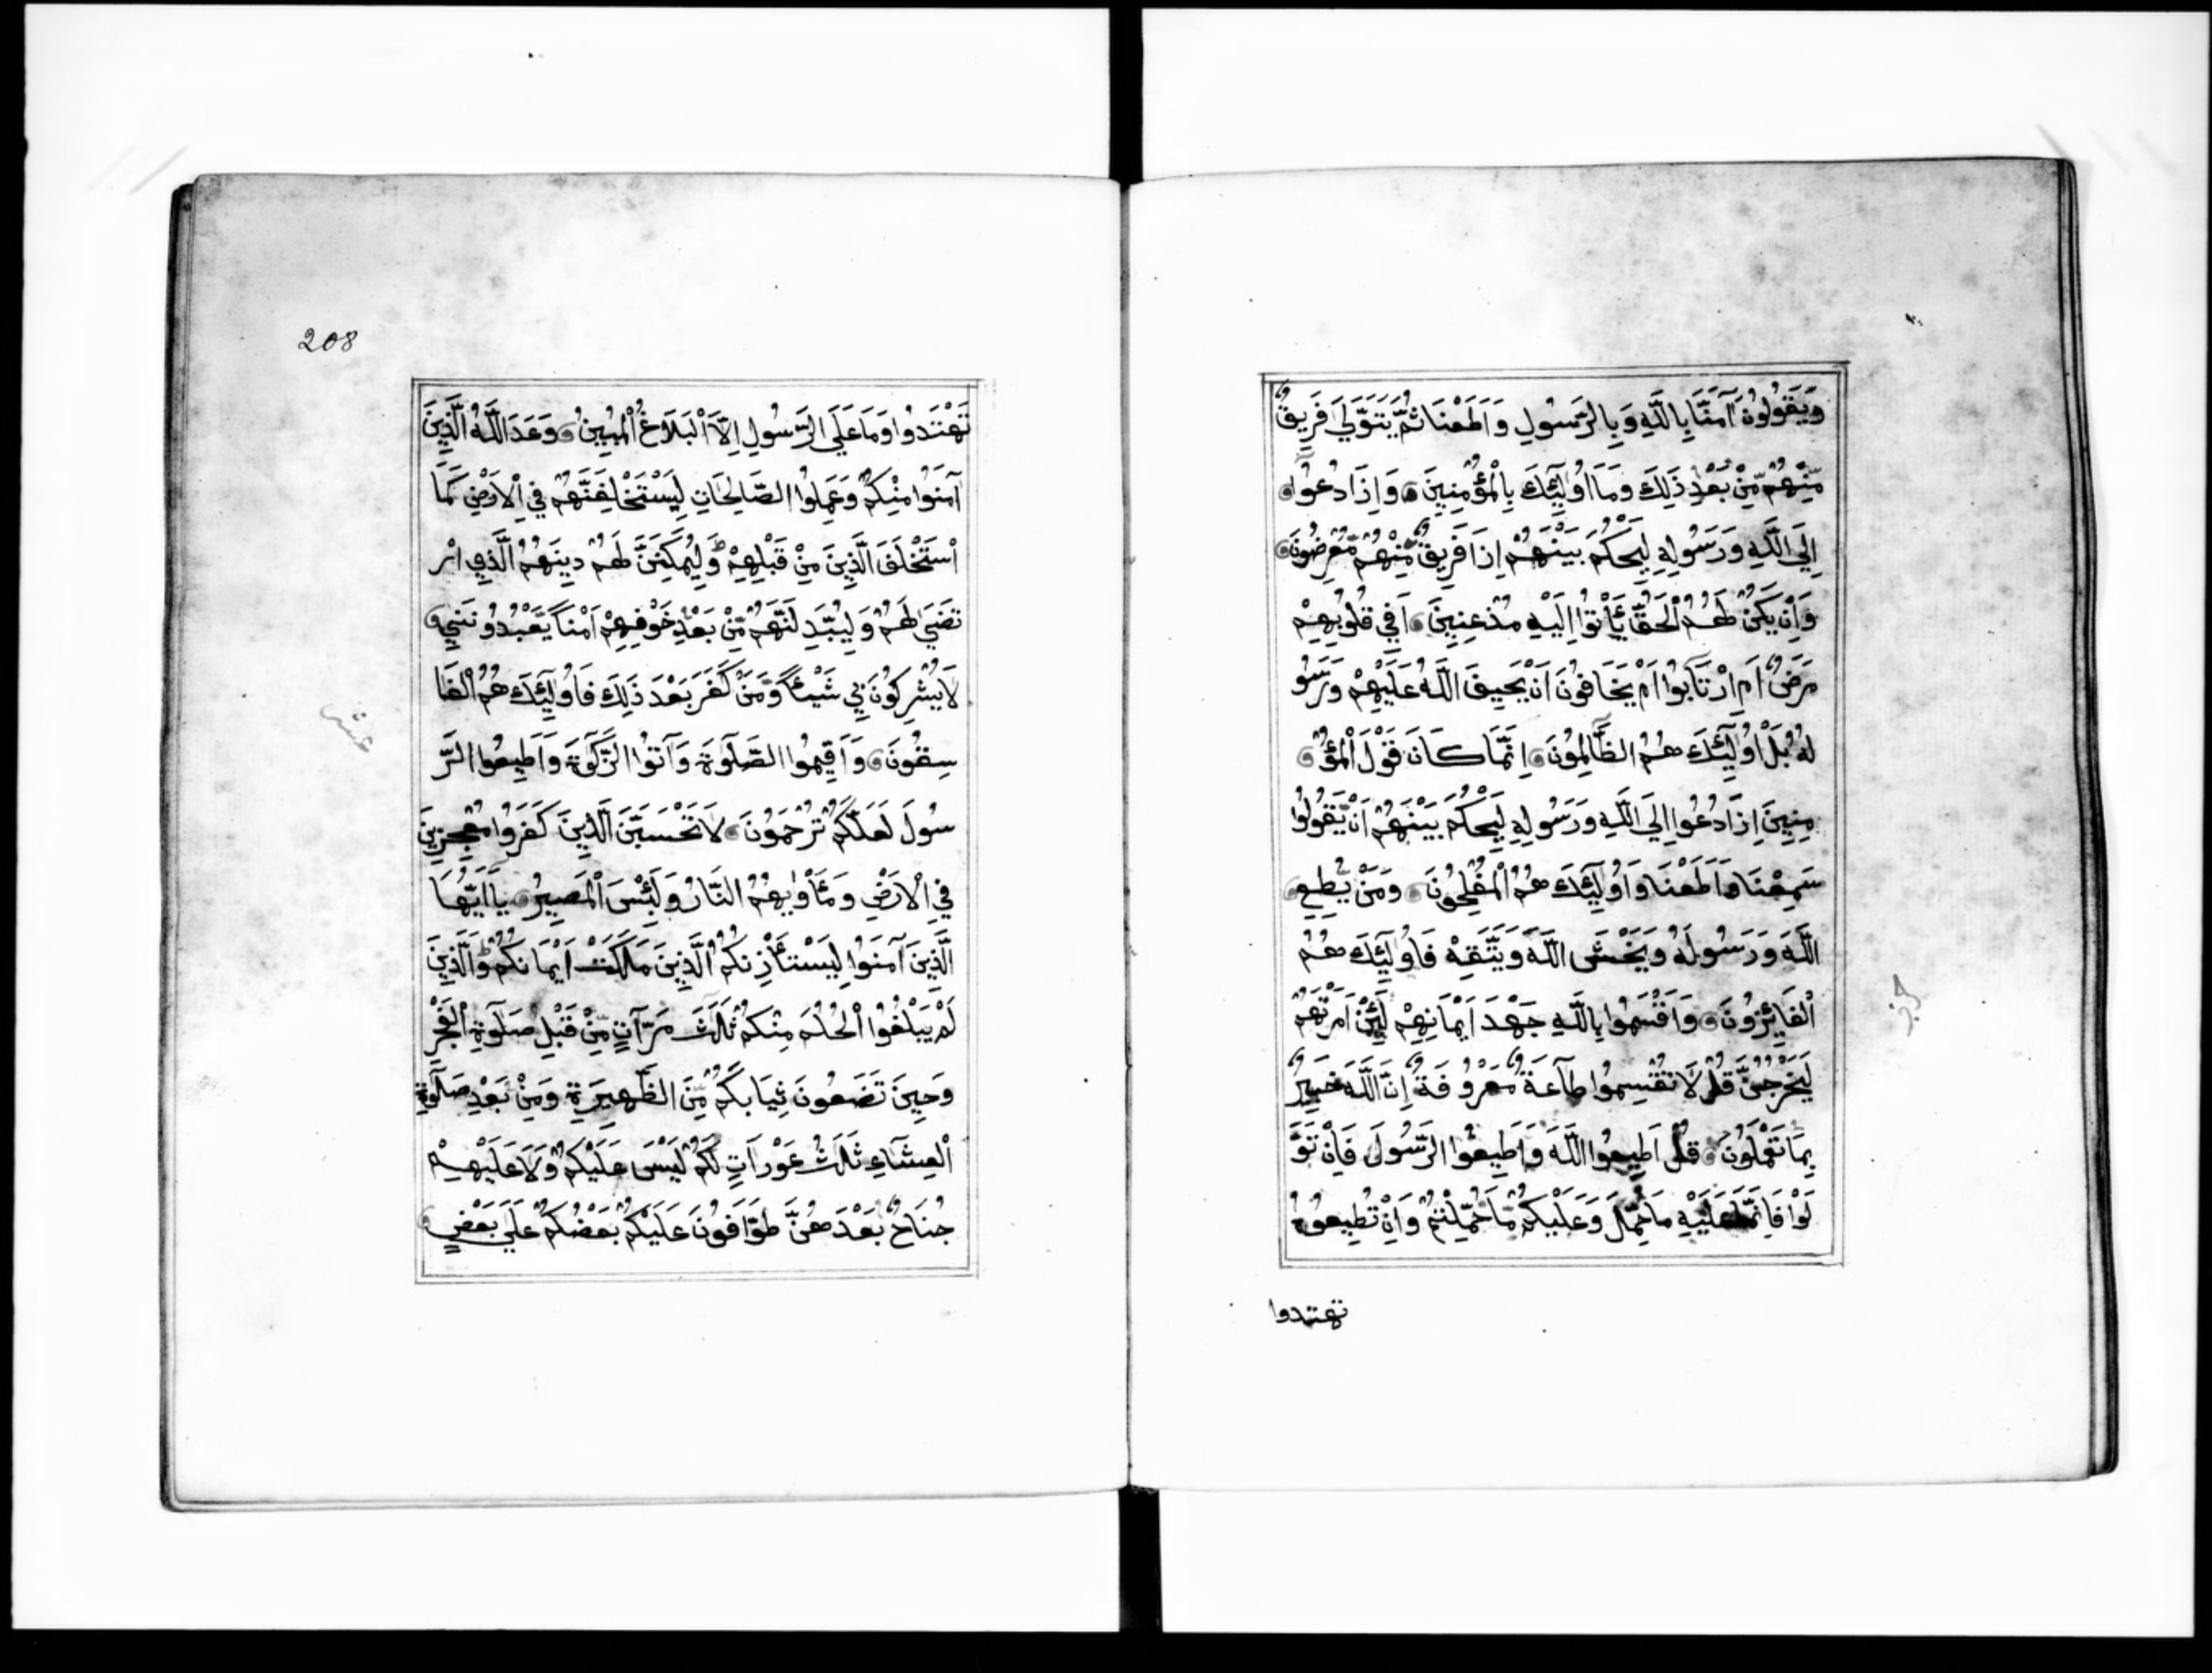 وَيَقُولُونَ آمَنَّا بِاللَّهِ وَبِالرَّسُولِ وَاَطَعْنَا ثُمَّ يَتَوَلَّي فَرِيقٌ
مِّنْهُمْ مِّنْ بَعْدِ ذَلِكَ وَمَا اُولَئِكَ بِالْمُؤْمِنِينَ وَاِذَا دُعُوا
اِلَي اللَّهِ وَرَسُولِهِ لِيَحْكُمَ بَيْنَهُمْ اِذَا فَرِيقٌ مِّنْهُمْ مُّعْرِضُونَ
وَاِنْ يَّكُنْ لَّهُمُ الْحَقُّ يَأْتُوا اِلَيْهِ مُذْعِنِينَ اَفِي قُلُوبِهِمْ
مَرَضٌ اَمِ ارْتَابُوا اَمْ يَخَافُونَ اَنْ يَّحِيفَ اللَّهُ عَلَيْهِمْ وَرَسُو
لُهُ بَلْ اُولَئِكَ هُمُ الظَّالِمُونَ اِنَّمَا كَانَ قَوْلَ الْمُؤْ
مِنِينَ اِذَا دُعُوا اِلَي اللَّهِ وَرَسُولِهِ لِيَحْكُمَ بَيْنَهُمْ اَنْ يَّقُولُوا
سَمِعْنَا وَاَطَعْنَا وَاُولَئِكَ هُمُ الْمُفْلِحُونَ وَمَنْ يُّطِعِ
اللَّهَ وَرَسُولَهُ وَيَخْشَى اللَّهَ وَيَتَّقِهْ فَاُولَئِكَ هُمُ
الْفَائِزُونَ وَاَقْسَمُوا بِاللَّهِ جَهْدَ اَيْمَانِهِمْ لَئِنْ اَمَرْتَهُمْ
لَيَخْرُجُنَّ قُلْ لَّا تُقْسِمُوا طَاعَةٌ مَّعْرُوفَةٌ اِنَّ اللَّهَ خَبِيرٌ
بِمَا تَعْمَلُونَ قُلْ اَطِيعُوا اللَّهَ وَاَطِيعُوا الرَّسُولَ فَاِنْ تَوَ
لَّوْا فَاِنَّمَا عَلَيْهِ مَا حُمِّلَ وَعَلَيْكُمْ مَّا حُمِّلْتُمْ وَاِنْ تُطِيعُوهُ
تهتدوا
حزب
208
تَهْتَدُوا وَمَا عَلَي الرَّسُولِ اِلَّا الْبَلَاغُ الْمُبِينُ وَعَدَ اللَّهُ الَّذِينَ
آمَنُوا مِنْكُمْ وَعَمِلُوا الصَّالِحَاتِ لِيَسْتَخْلِفَنَّهُمْ فِي الْاَرْضِ كَمَا
اسْتَخْلَفَ الَّذِينَ مِنْ قَبْلِهِمْ وَلِيُمَكِّنَنَّ لَهُمْ دِينَهُمُ الَّذِي ارْ
تَضَي لَهُمْ وَلِيُبَدِّلَنَّهُمْ مِّنْ بَعْدِ خَوْفِهِمْ اَمْنًا يَّعْبُدُونَنِي
لَا يُشْرِكُونَ بِي شَيْئًا وَّمَنْ كَفَرَ بَعْدَ ذَلِكَ فَاُولَئِكَ هُمُ الْفَا
سِقُونَ وَاَقِيمُوا الصَّلَوةَ وَآتُوا الزَّكَوةَ وَاَطِيعُوا الرَّ
سُولَ لَعَلَّكُمْ تُرْحَمُونَ لَا تَحْسَبَنَّ الَّذِينَ كَفَرُوا مُعْجِزِينَ
فِي الْاَرْضِ وَمَأْوَيهُمُ النَّارُ وَلَبِئْسَ الْمَصِيرُ يَا اَيُّهَا
الَّذِينَ آمَنُوا لِيَسْتَأْذِنْكُمُ الَّذِينَ مَلَكَتْ اَيْمَانُكُمْ وَالَّذِينَ
لَمْ يَبْلُغُوا الْحُلُمَ مِنْكُمْ ثَلَثَ مَرَّاتٍ مِّنْ قَبْلِ صَلَوةِ الْفَجْرِ
وَحِينَ تَضَعُونَ ثِيَابَكُمْ مِّنَ الظَّهِيرَةِ وَمِنْ بَعْدِ صَلَوةِ
الْعِشَاءِ ثَلَثُ عَوْرَاتٍ لَّكُمْ لَيْسَ عَلَيْكُمْ وَلَا عَلَيْهِمْ
جُنَاحٌ بَعْدَهُنَّ طَوَّافُونَ عَلَيْكُمْ بَعْضُكُمْ عَلَي بَعْضٍ
عشر